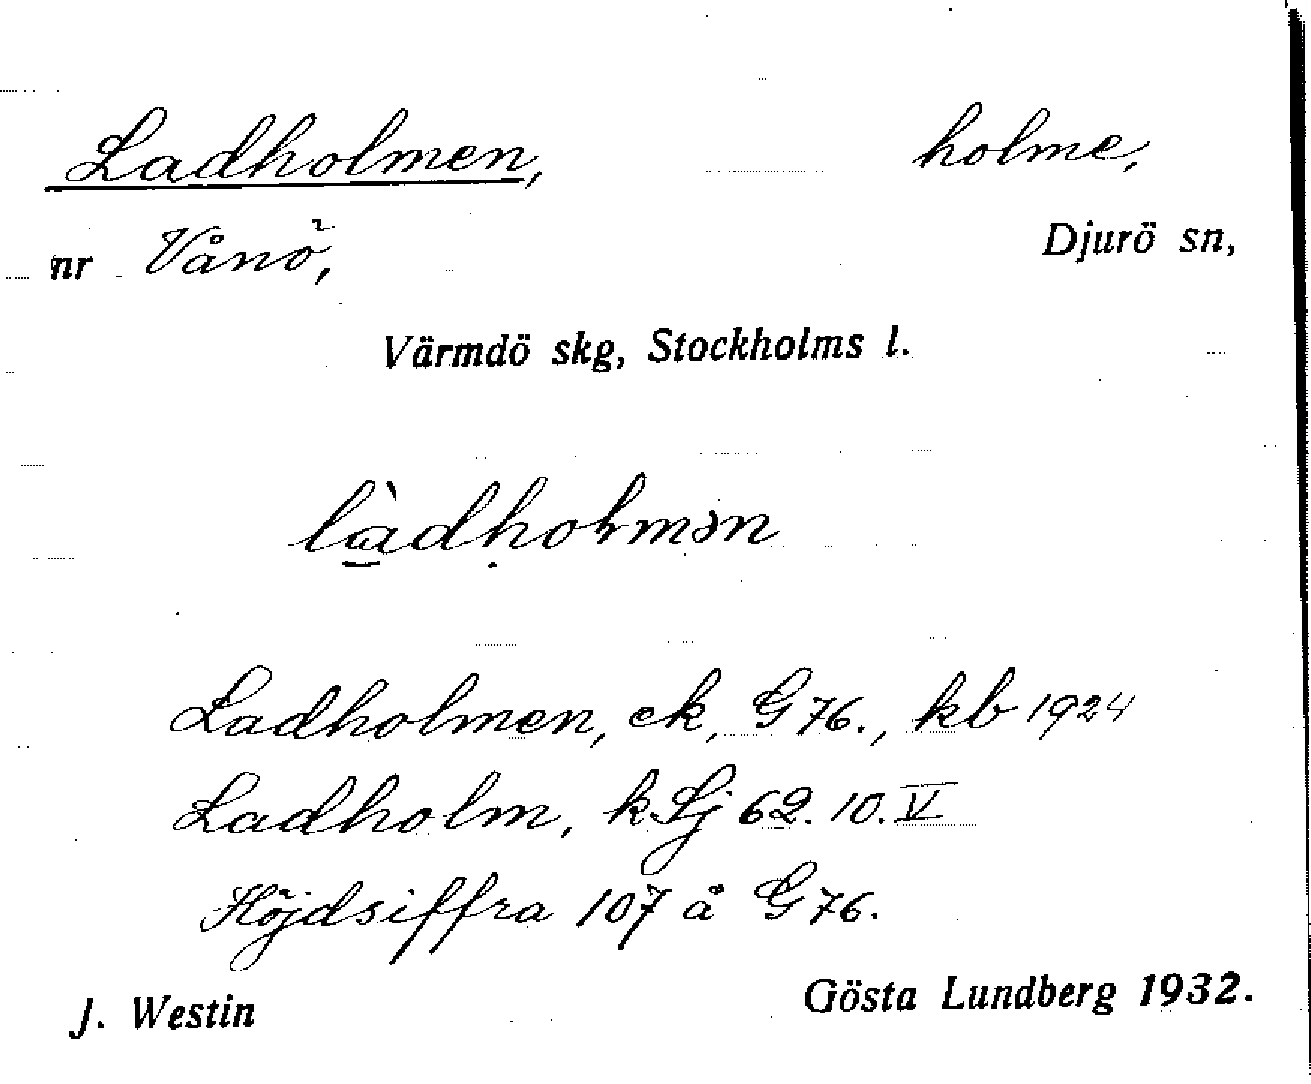 Ladholmen, holme,
nr Vånö, Djurö sn,
Värmdö skg, Stockholms l.
là̱dḥoƚmən
Ladholmen, ek, G 76., kb 1924
Ladholm, k Sj 62. 10. V
Höjdsiffra 107 å G 76.
J. Westin Gösta Lundberg 1932.